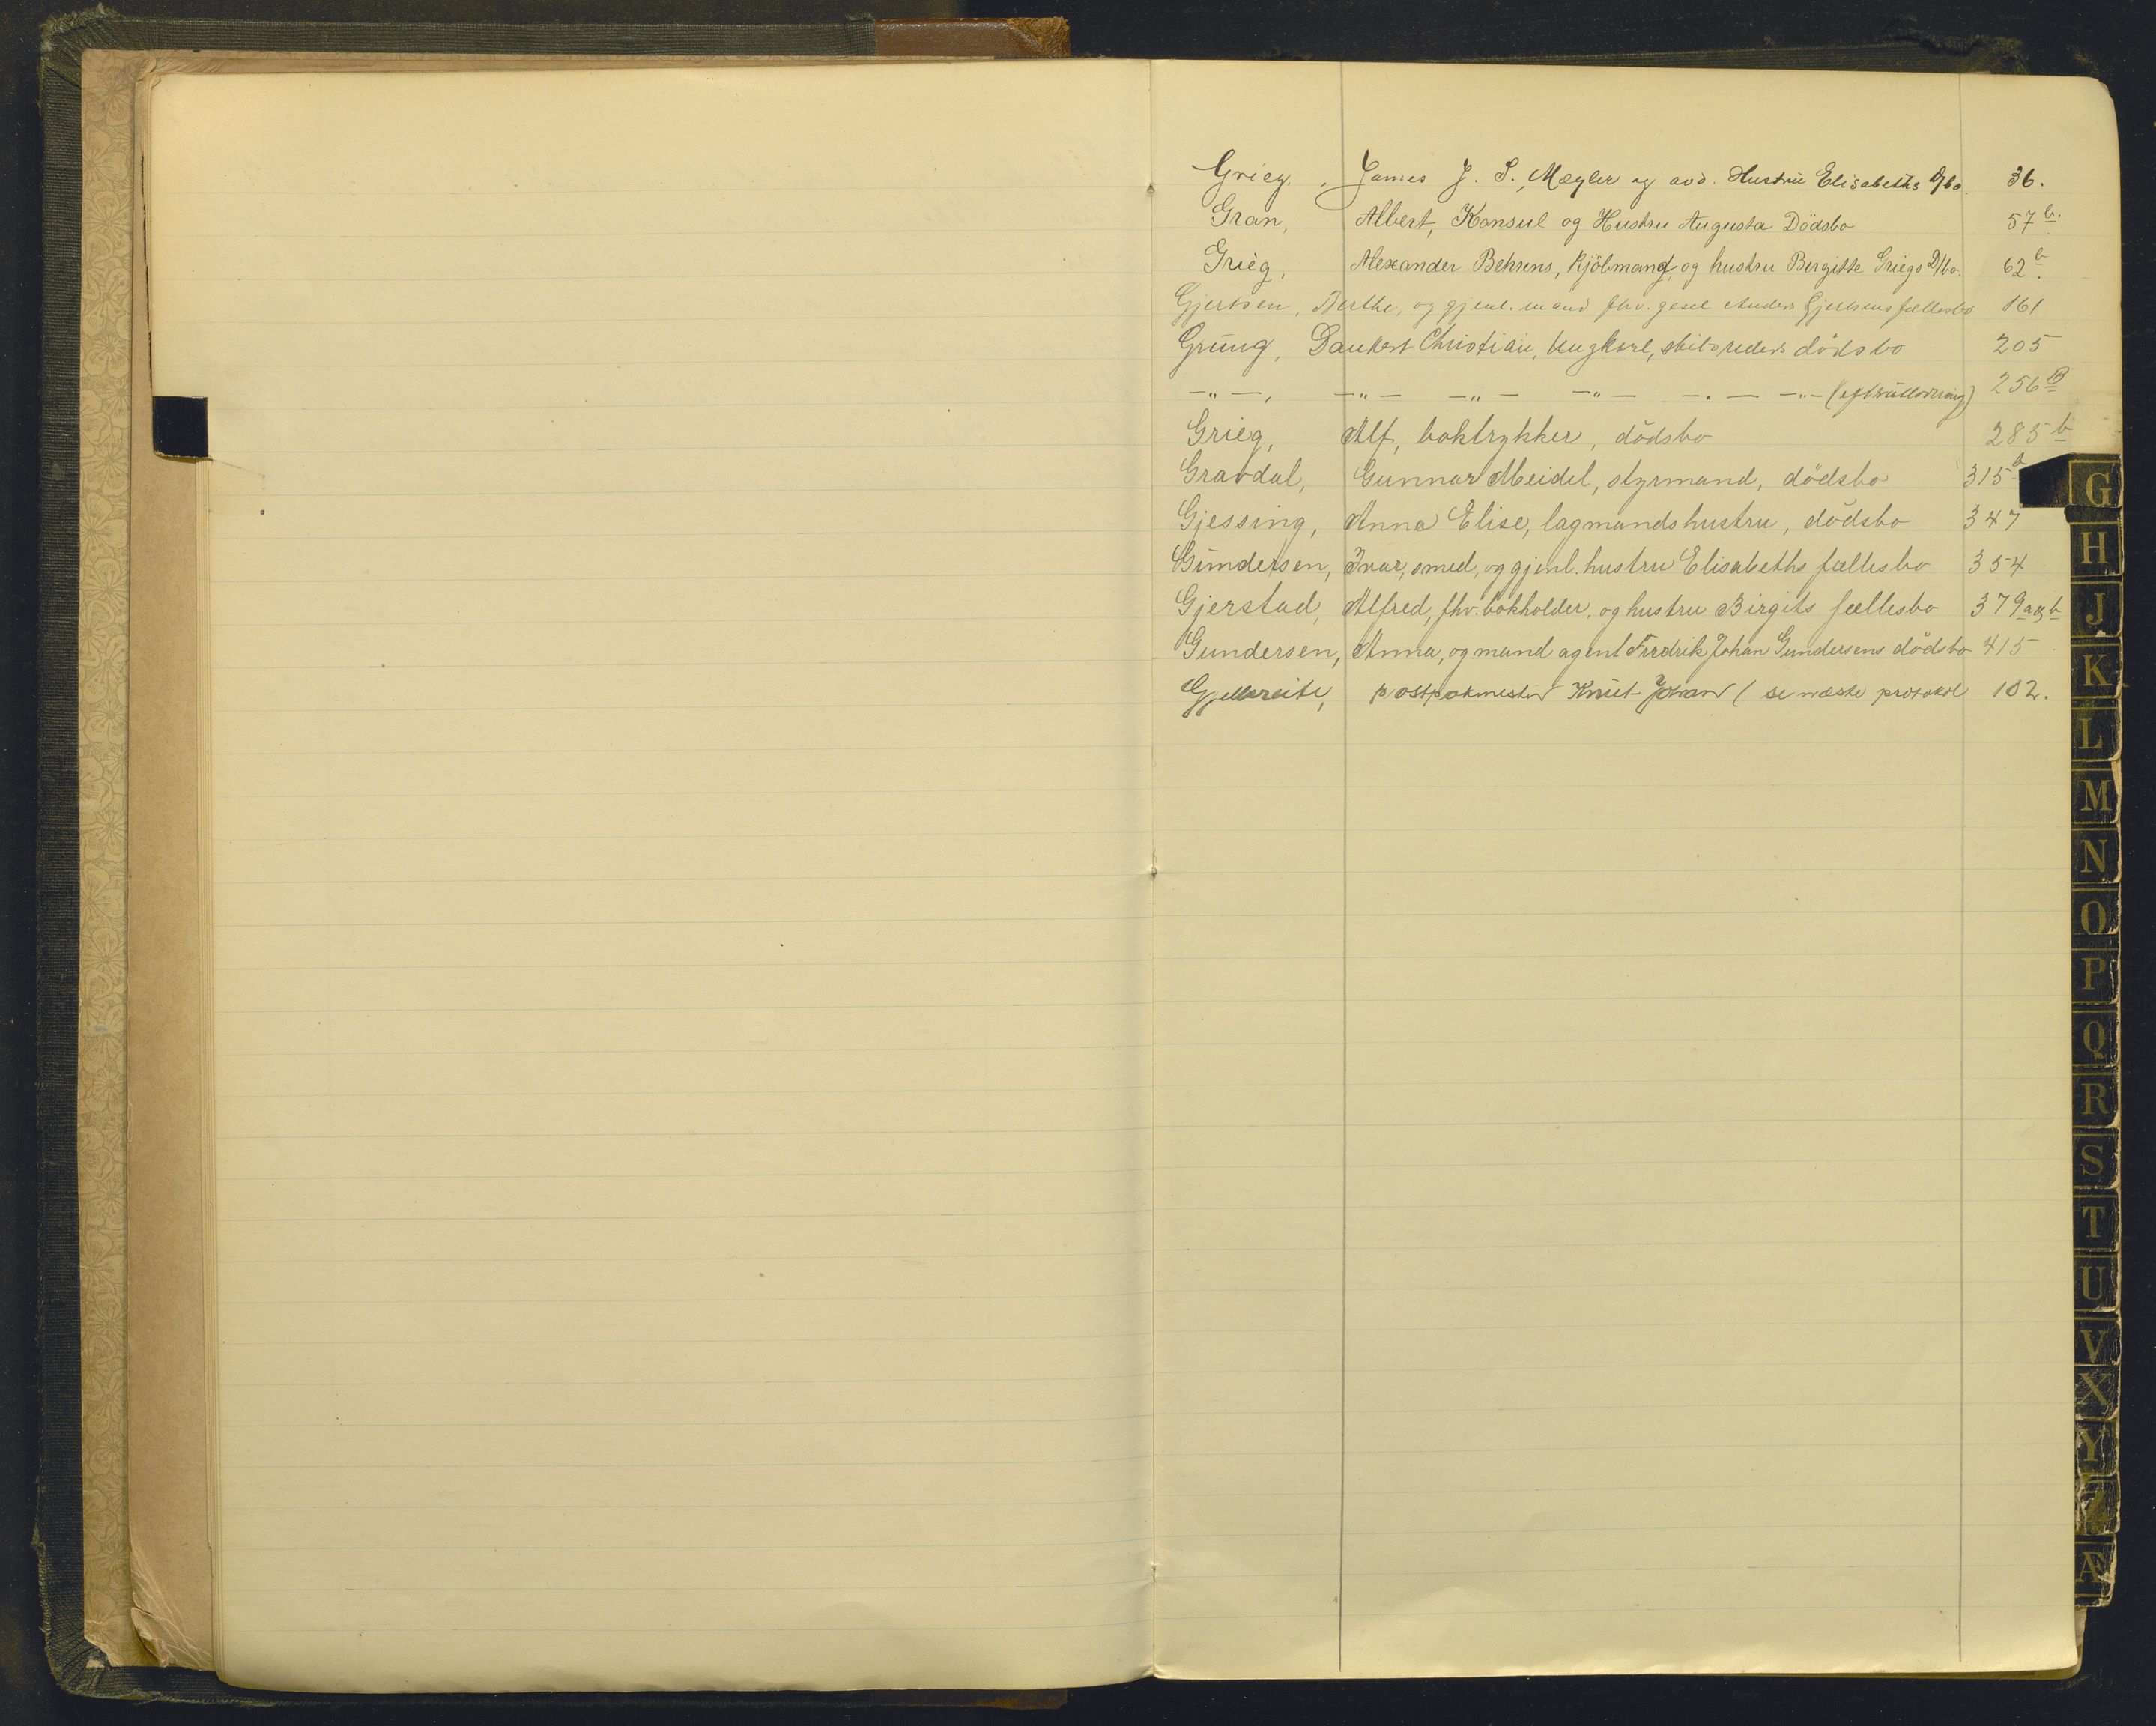 Grieg, James J. S. Mægler og avd. Hustru Elisabeths D/bo. 36.
Gran, Albert, Konsul og Hustru Augusta Dödsbo 57 b.
Grieg, Alexander Behrens, Kjöbmand, og hustru Birgitte Griegs D/bo. 62 b.
Gjertsen, Berthe, og gjenl. mand fhv. gesel Anders Gjertsens fællesbo 161
Grung, Dankert Christian, Ungkarl, skibsreders dödsbo 205
—"—, —"— —"— —"— —"— —"— (eftrutlodning) 256 B
Grieg, Alf, boktrykker, dödsbo 285 b
Gravdal, Gunnar Meidel, styrmand, dödsbo 315 b
Gjessing, Anna Elise, lagmandshustru, dödsbo 347
Gundersen, Ivar, smed, og gjenl. hustru Elisabeths fællesbo 354
Gjerstad, Alfred, fhv. bokholder, og hustru Birgits fællesbo 379 a og b
Gundersen, Anna, og mand agent Fredrik Johan Gundersens dödsbo 415
postpakmester Knut Johan (se næste protokol 102.
G
H
J
K
L
M
N
O
P
Q
R
S
T
U
V
X
Y
Z
Æ